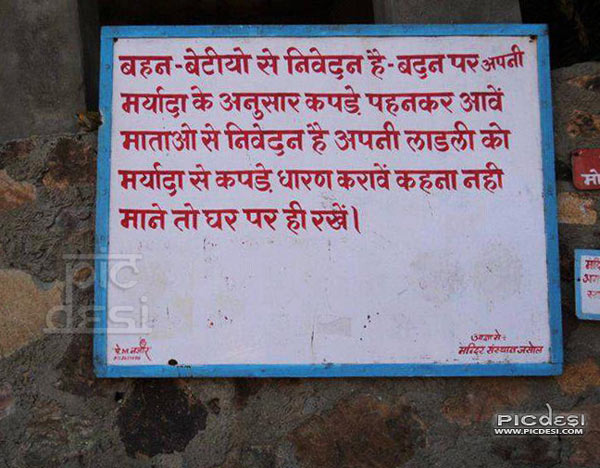 बहन-बेटीयो से निवेदन है-बदन पर अपनी
मर्यादा के अनुसार कपड़े पहनकर आवें
माताओ से निवेदन है अपनी लाडली को
मर्यादा से कपड़े धारण करावें कहना नही
माने तो घर पर ही रखें।
आज्ञा से:
मन्दिर संस्थान जसोल
मो
pic
desi
PICdesi
WWW.PICDESI.COM